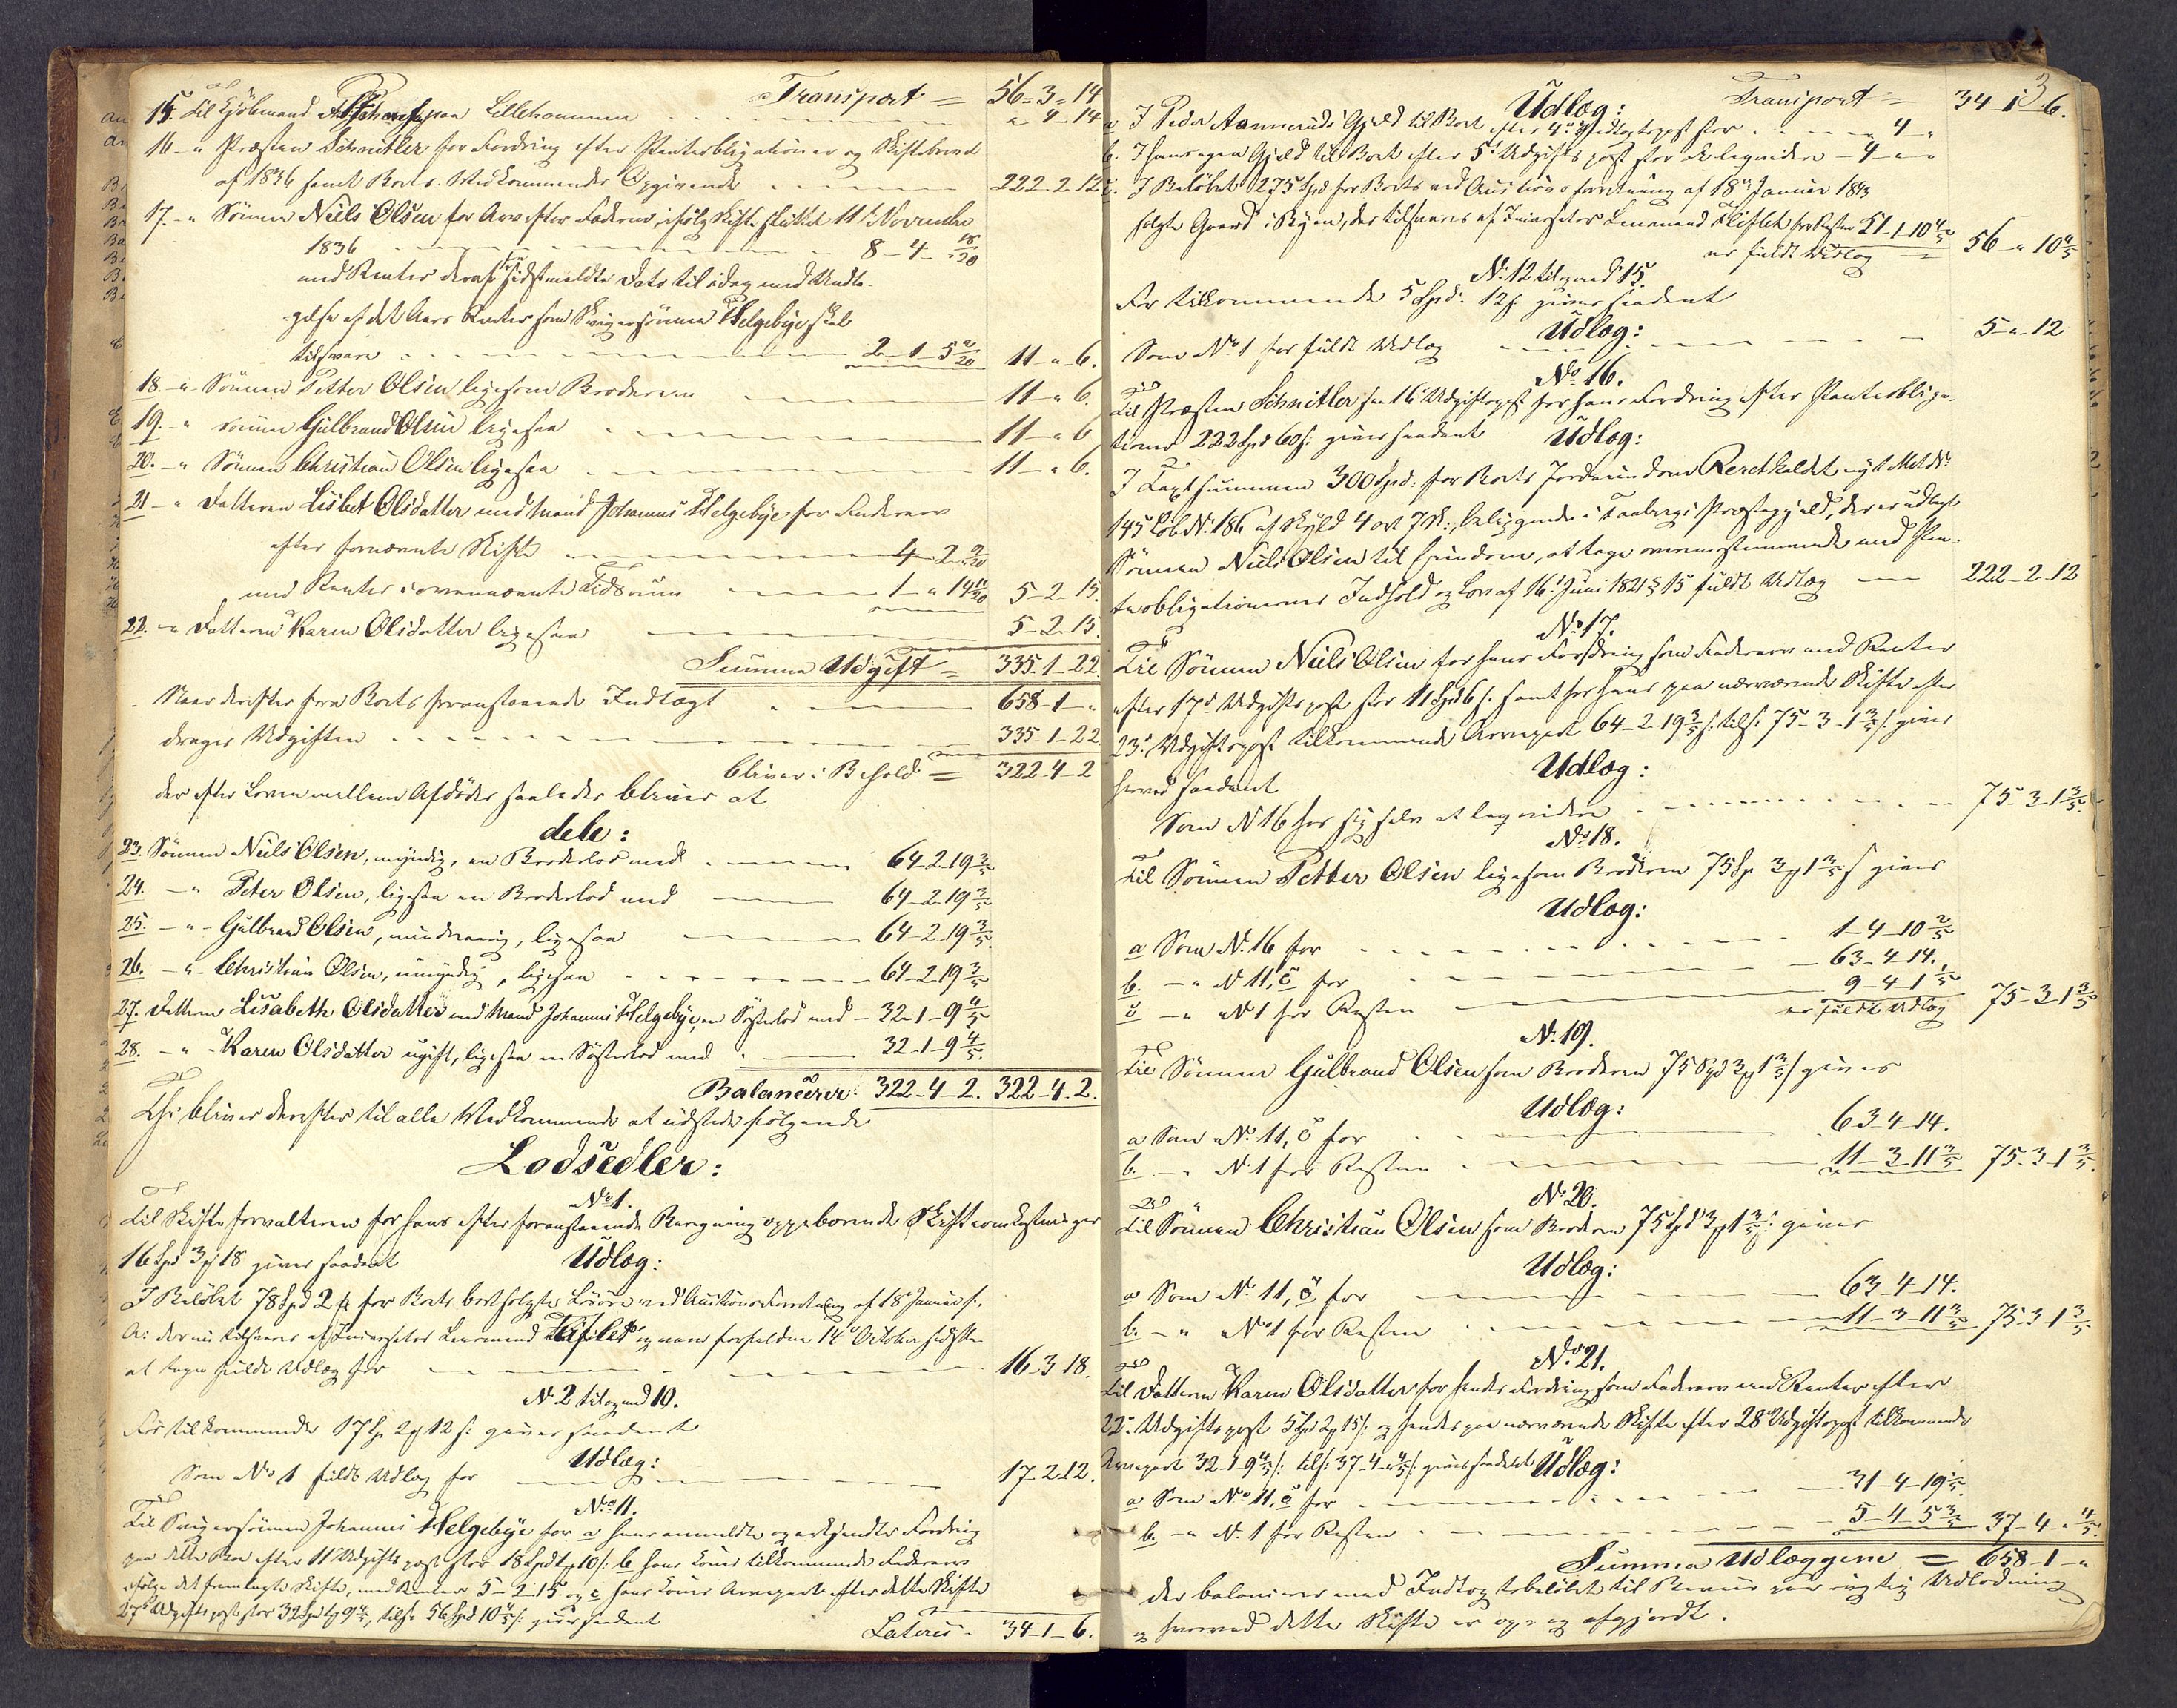 Transport = 56-3-14
15. Til Kjøbmand paa Lillehammer - 4-14
16 - " Præsten Schnitler for Fordring efter Panteobligationer og Skiftebrev
af 1836 samt Boets Vedkommendes Opgivende 222-2-12
17. - " Sønnen Niels Olsen for Arv efter Faderen, ifølge Skifte sluttet 11te November
1836 8-4- 18/20
med Renter deraf fra sidstmeldte Dato til idag med Undta-
gelse af det Aars Renter som Svigersønnen Helgebye skal
tilsvare 2-1-5 2/20 11-"-6.
18 - " Sønnen Petter Olsen ligesom Broderen 11-"-6.
19. - " Sønnen Gulbrand Olsen ligesaa 11-"-6
20. - " Sønnen Christian Olsen ligesaa 11-"-6.
21 - " Datteren Lisbet Olsdatter med Mand Johannes Helgebye for Fadrearv
efter fornævnte Skifte 4-2- 9/20
med Renter i ovennævnte Tidsrum 1-"-14 5-2-15.
22. - " Datteren Karen Olsdatter ligesaa 5-2-15.
Summa Udgift = 335-1-22
Naar derefter fra Boets foranstaaende Indtægt 658-1-"
drages Udgiften 335-1-22
bliver i Behold = 322-4-2
der efter Loven mellem Afdødes saaledes bliver at
dele:
23. Sønnen Niels Olsen, myndig, en Broderlod med 64-2-19 3/5
24. - " Peter Olsen, ligesaa en Broderlod med 64-2-19 3/5
25. - " - Gulbrand Olsen, mindreaarig, ligesaa 64-2-19 3/5.
26. - " - Christian Olsen, umyndig, ligesaa 64-2-19 3/5
27. Datteren Lisabethe Olsdatter med Mand Johannes Helgebye, en Søsterlod med - 32-1-9 4/5
28. - " - Karen Olsdatter ugift, ligesaa en Søsterlod med 32-1-9 4/5.
Balancerer 322-4-2. 322-4-2.
Thi bliver derefter til alle Vedkommende at udstede følgende
Lodsedler:
No 1.
Til Skifteforvalteren for hans efter foranstaaende Beregning oppebærende Skifteomkostninger
16 Spd 3 ort 18 gives saadant Udlæg:
I Beløbet 78 Spd 2 ort for Boets bortsolgte Løsøre ved Auctionsforretning af 18de Januar f.
A: der nu tilsvares af Incassator Lensmand Fliflet og var forfalden 14de October sidstl.
at tage fuldt Udlæg for 16-3-18.
No 2 til og med 10.
For tilkommende 17 Sp. 2 ort 12 s. gives saadant
Udlæg:
Som No 1 fuldt Udlæg for 17-2-12.
No 11.
Til Svigersønnen Johannes Helgebye for a hans anmeldte og erkjendte Fordring
paa dette Boe efter 11te Udgiftspost stor 18 Spd 1 ort 10 s. b hans Kones tilkommende Fædrearv
ifølge det fremlagte Skifte, med Renter 5-2-15 og c hans Kones Arvepart efter dette Skifte
27de Udgiftspost stor 32 Spd 1 ort 9 4/5, tils. 56 Spd 10 4/5 s. gives saadant
Lateris 34-1-6.
3
Udlæg: Transport = 34-1-6.
a I Peder Aannerudes Gjæld til Boet efter 4de Indtægtspost stor - 4-"
b. I hans egen Gjæld til Boet efter 5te Udgiftspost stor at liqvidere - 4-"-"
c. I Beløbet 275 Spd for Boets ved Auctionsforretning af 18de Januar 1843
solgte Gaard i Byen, der tilsvares af Incassator Lensmand Fliflet for Resten 51-1-10 4/5
er fuldt Udlæg = 56-"-10 4/5
No 12 til og med 15.
For tilkommende 5 Spd. 12 s gives saadant
Udlæg:
Som No 1 for fuldt Udlæg 5-"-12
No 16.
Til Præsten Schnitler for 16de Udgiftspost for hans Fordring efter Panteobliga-
tioner 222 Spd 60 s. gives saadant Udlæg:
I Taxtsummen 300 Spd. for Boets Jordeiendom kaldet, nyt Matr.
145 Løb No 186 af Skyld 4 ort 7 sk., beliggende i Faabergs Præstegjeld, der er udlagt
Sønnen Niels Olsen til Eiendom, at tage overensstemmende med Pan-
teobligationernes Indhold og Lov af 16de Juni 1821 § 15 fuldt Udlæg 222-2-12
No 17.
Til Sønnen Niels Olsen for hans Fordring som Fædrearv med Renter
efter 17de Udgiftspost stor 11 Spd 6 s. samt for hans paa nærværende Skifte efter
23de Udgiftspost tilkommende Arvepart 64-2-19 3/5 s. tils. 75-3-1 3/5 s. gives
herved saadant Udlæg:
Som No 16 hos sig selv at liqvidere 75-3-1 3/5.
No 18.
Til Sønnen Petter Olsen ligesom Broderen 75 Sp 3 ort 1 3/5 s gives
Udlæg:
a Som No 16 for 1-4-10 2/5
b. - " No 11, c for 63-4-14.
c - " No 1 for Resten 9-4-1 1/5
er fuldt Udlæg 75-3-1 3/5
No 19.
Til Sønnen Gulbrand Olsen som Broderen 75 Spd 3 ort 1 3/5 s gives
Udlæg:
a Som No 11, c for 63-4-14.
b. - " No 1 for Resten 11-3-11 3/5 75-3-1 3/5.
No 20.
Til Sønnen Christian Olsen som Broderen 75 Spd 3 ort 1 3/5 s. gives
Udlæg:
a Som No 11, c for 63-4-14.
b. - " No 1 for Resten 11-3-11 3/5 75-3-1 3/5
No 21.
Til Datteren Karen Olsdatter for hendes Fordring som Faderarv med Renter efter
22de Udgiftspost 5 Spd 2 ort 15 s. og hendes paa nærværende Skifte efter 28de Udgiftspost tilkommende
Arvepart 32-1-9 4/5 s. tils. 37-4-" 4/5 s. gives saadant Udlæg:
a Som No 11, c for 31-4-19 1/5.
b. - " No 1 for Resten 5-4-5 3/5 37-4-" 4/5.
Summa Udlæggene = 658-1-"
der balancerer med Indtægtsbeløbet til Beviis paa rigtig Udlodning
og hvorved dette Skifte er op- og afgjordt.